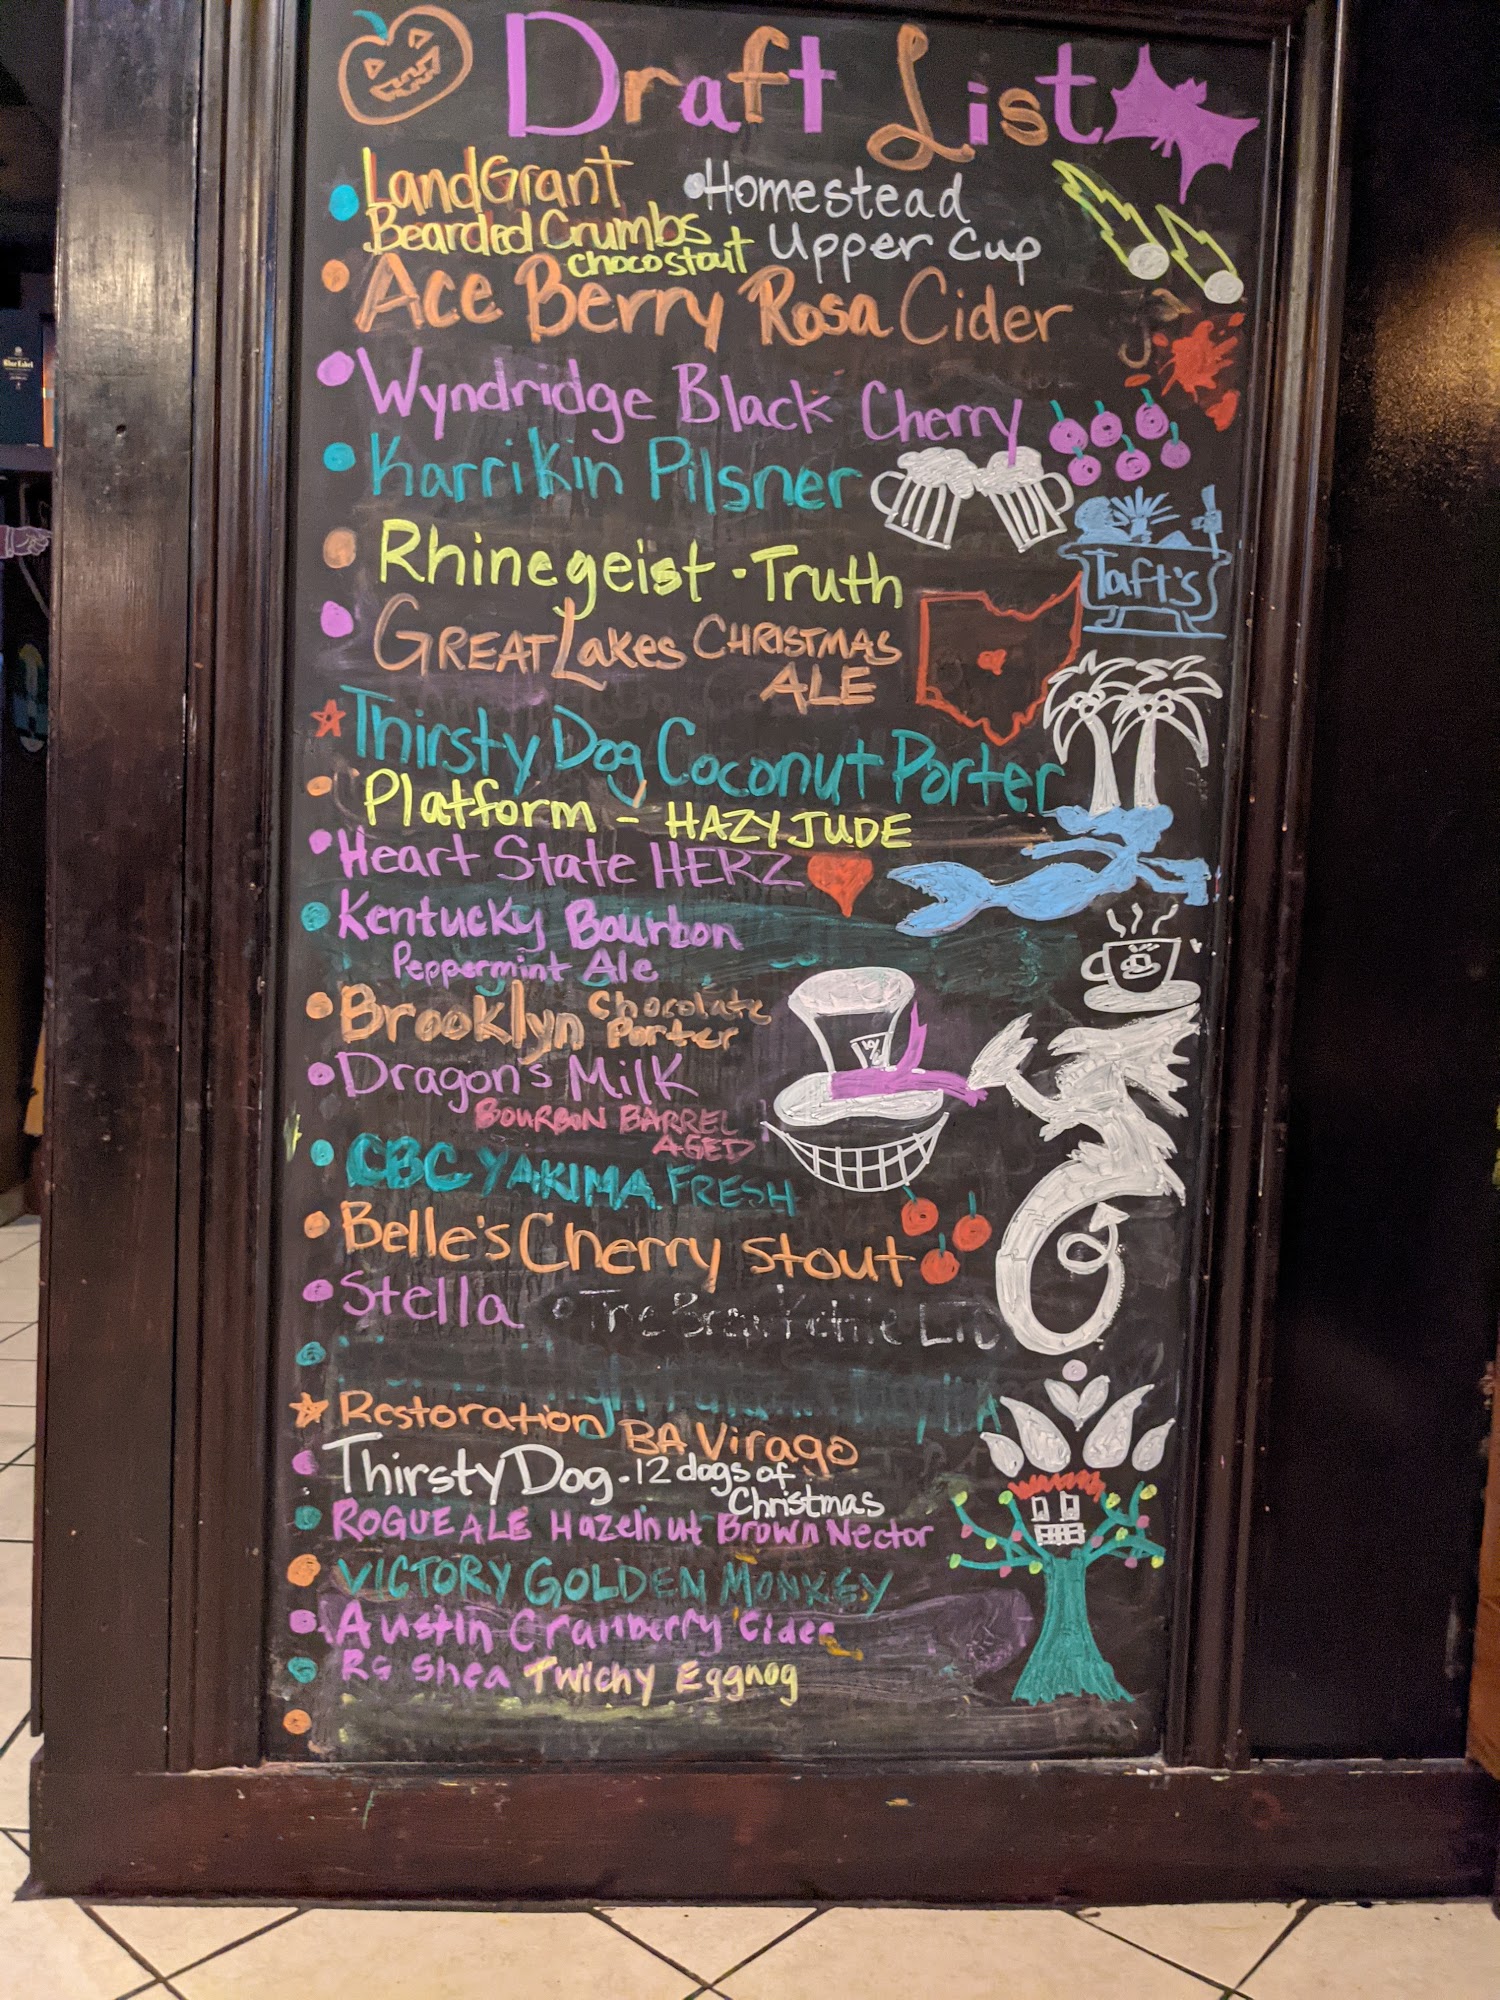 Draft List
LandGrant
Bearded Crumbs
choco stout
Homestead
Upper Cup
Ace Berry Rosa Cider
Wyndridge Black Cherry
Karrikin Pilsner
Taft's
Rhinegeist · Truth
GREAT Lakes CHRISTMAS
ALE
Thirsty Dog Coconut Porter
Platform - HAZY JUDE
Heart State HERZ
Kentucky Bourbon
Peppermint Ale
Brooklyn Chocolate
Porter
Dragon's Milk
BOURBON BARREL
AGED
CBC YAKIMA FRESH
Belle's Cherry Stout
Stella
Restoration BA Virago
Thirsty Dog · 12 dogs of
Christmas
ROGUE ALE Hazelnut Brown Nector
VICTORY GOLDEN MONKEY
Austin Cranberry Cider
RG Shea Twichy Eggnog
Blue Label